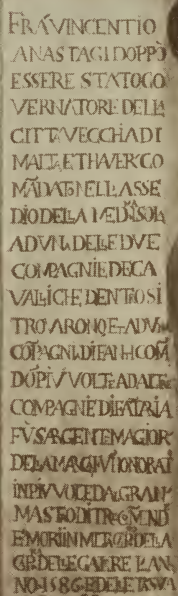 FRA VINCENTIO
ANASTAGI DOPPO
ESSERE STATO GO
VERNATORE DELLA
CITTA VECCHIA DI
MALTA ET HAVER CO
MĀDATO NELL ASSE
DIO DELLA MEDMA ISOLA
AD VNA DELLE DVE
COMPAGNIE DE CA
VALLI CHE DENTRO SI
TROVARONO E AD VNA
COPAGNIA DI FANTI COM
DO PIV VOLTE AD ALTRE
COMPAGNIE DI FATRIA
FV SARGENTE MAGIOR
DE LA MA
IN PIV VOLTE DAL GRAN
MASTRO DI TRE COMND
E MORI IN MERCR DELLA
GR DELLE GALERE L AN
NO 1586 E DELE TA SVA